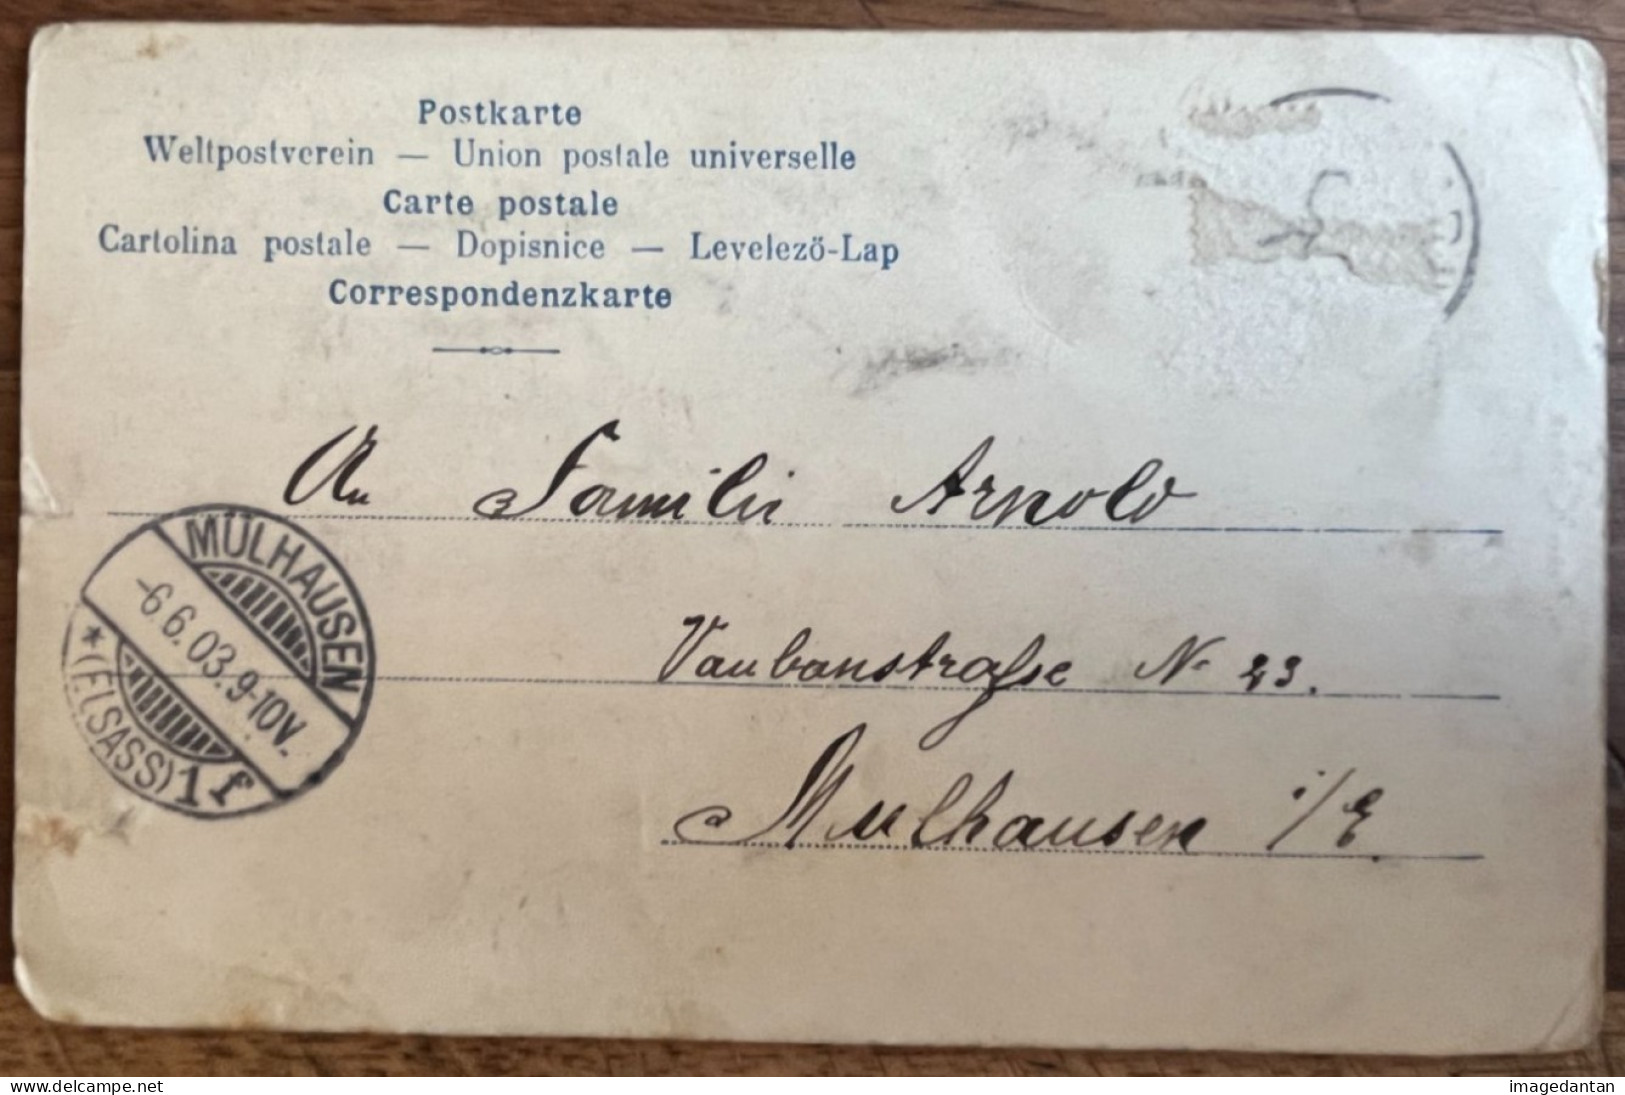 Postkarte
Weltpostverein — Union postale universelle
Carte postale
Cartolina postale — Dopisnice — Levelezö-Lap
Correspondenzkarte
An Familie Arnold
Vaubanstraße No 23.
Mulhausen i/E.
MÜLHAUSEN
-6.6.03.9-10V.
*(ELSASS) 1 f
www.delcampe.net
imagedantan